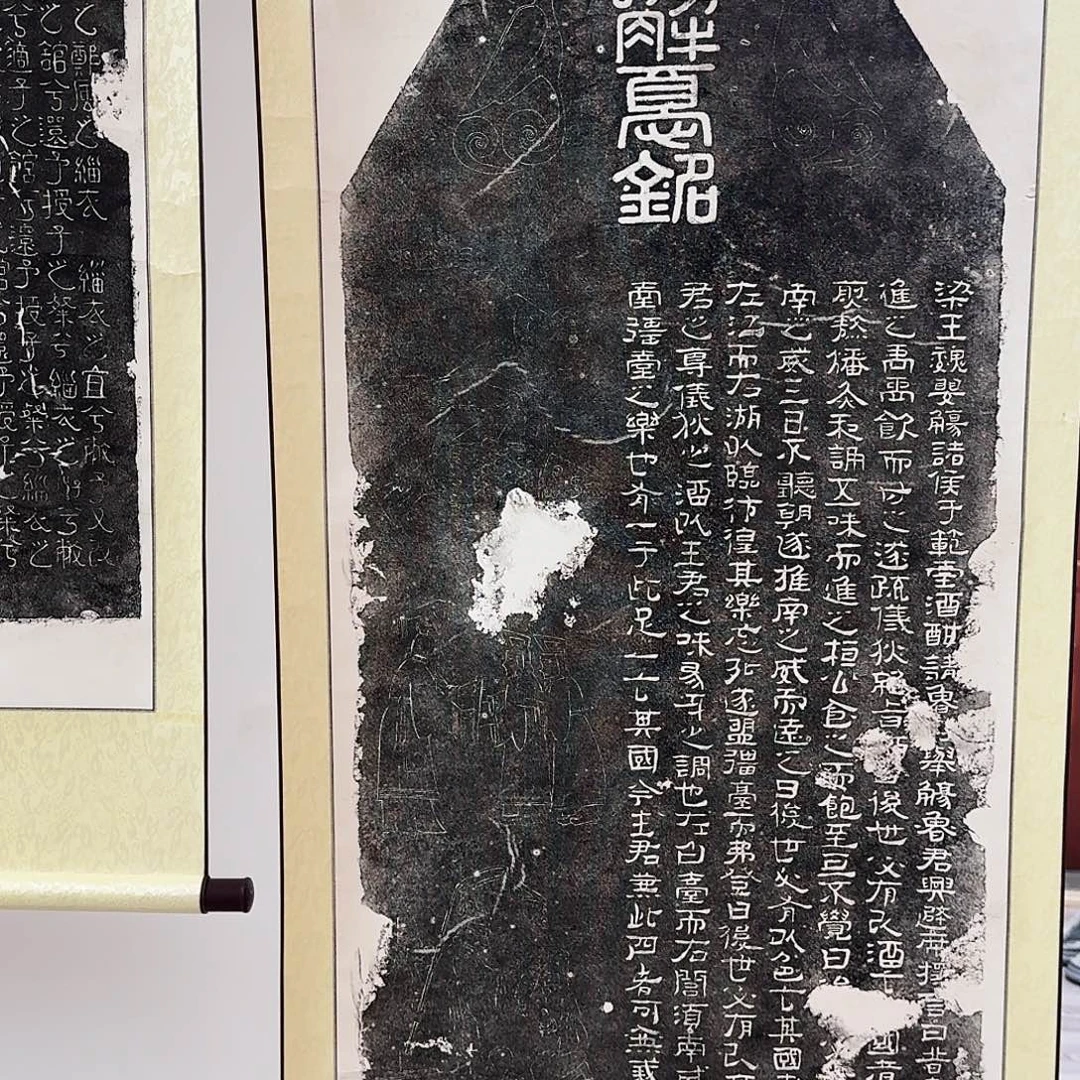 銘
梁王魏嬰觴諸侯于範臺酒酣請魯舉觴魯君興避席擇言曰昔
進之禹禹飲而甘之遂疏儀狄絕旨後世必有以酒亡國者
聚熬燔炙和調五味而進之桓公食之而飽至旦不覺曰
南之威三日不聽朝遂推南之威而遠之曰後世必有以色亡其國
左江而右湖以臨彷徨其樂忘死遂盟彊臺而弗登曰後世必有以
君之尊儀狄之酒也主君之味易牙之調也左白臺而右閭須南威
臺彊臺之樂也有一于此足亡其國今主君兼此四者可無戒
之鄭風之緇衣 緇衣之宜兮敝予又改
之館兮還予授子之粲兮緇衣之好兮敝
兮適子之館兮還予授子之粲兮緇衣之
館兮還予授子之粲兮